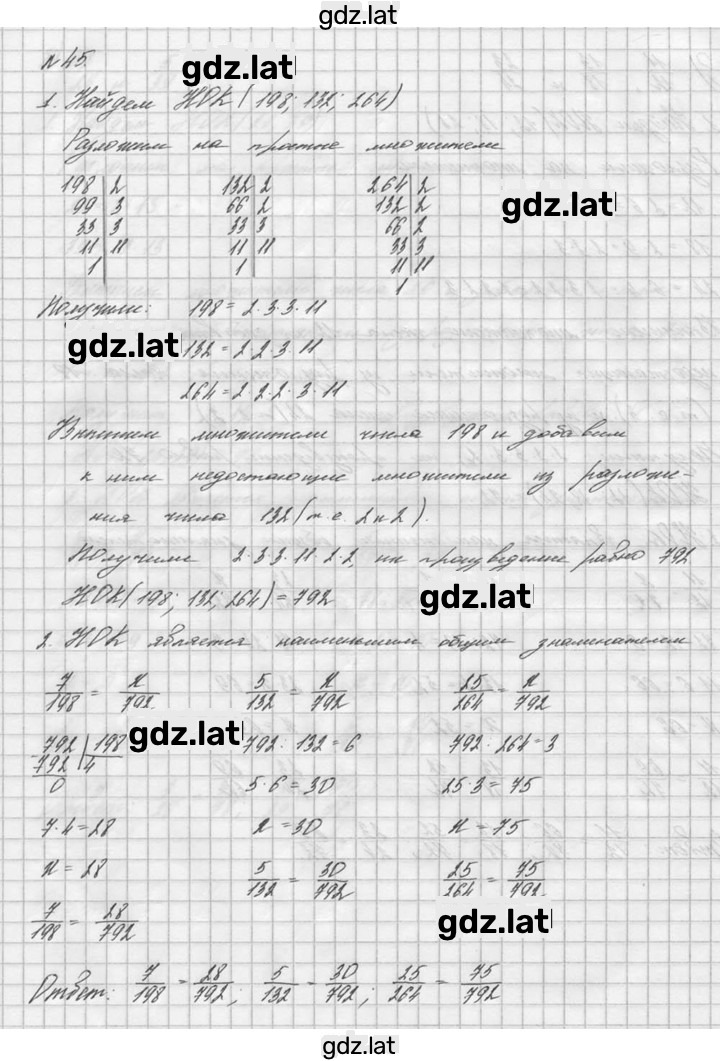 gdz.lat
№45.
gdz.lat
1. Найдем НОК(198; 132; 264)
Разложим на простые множители
198|2 132|2 264|2
99|3 66|2 132|2
33|3 33|3 66|2
11|11 11|11 33|3
1| 1| 11|11
1
gdz.lat
Получили: 198=2·3·3·11
gdz.lat
132=2·2·3·11
264=2·2·2·3·11
Выпишем множители числа 198 и добавим
к ним недостающие множители из разложе-
ния числа 132(т.е. 2 и 2).
Получили 2·3·3·11·2·2, их произведение равно 792
НОК(198; 132; 264)=792
gdz.lat
2. НОК является наименьшим общим знаменателем
7/198 = x/792 5/132 = x/792 25/264 = x/792
gdz.lat
792|198 792:132=6 792:264=3
792|4
0 5·6=30 25·3=75
7·4=28 x=30 x=75
x=28 5/132 = 30/792 25/264 = 75/792
7/198 = 28/792
gdz.lat
Ответ: 7/198 = 28/792; 5/132 = 30/792; 25/264 = 75/792
gdz.lat